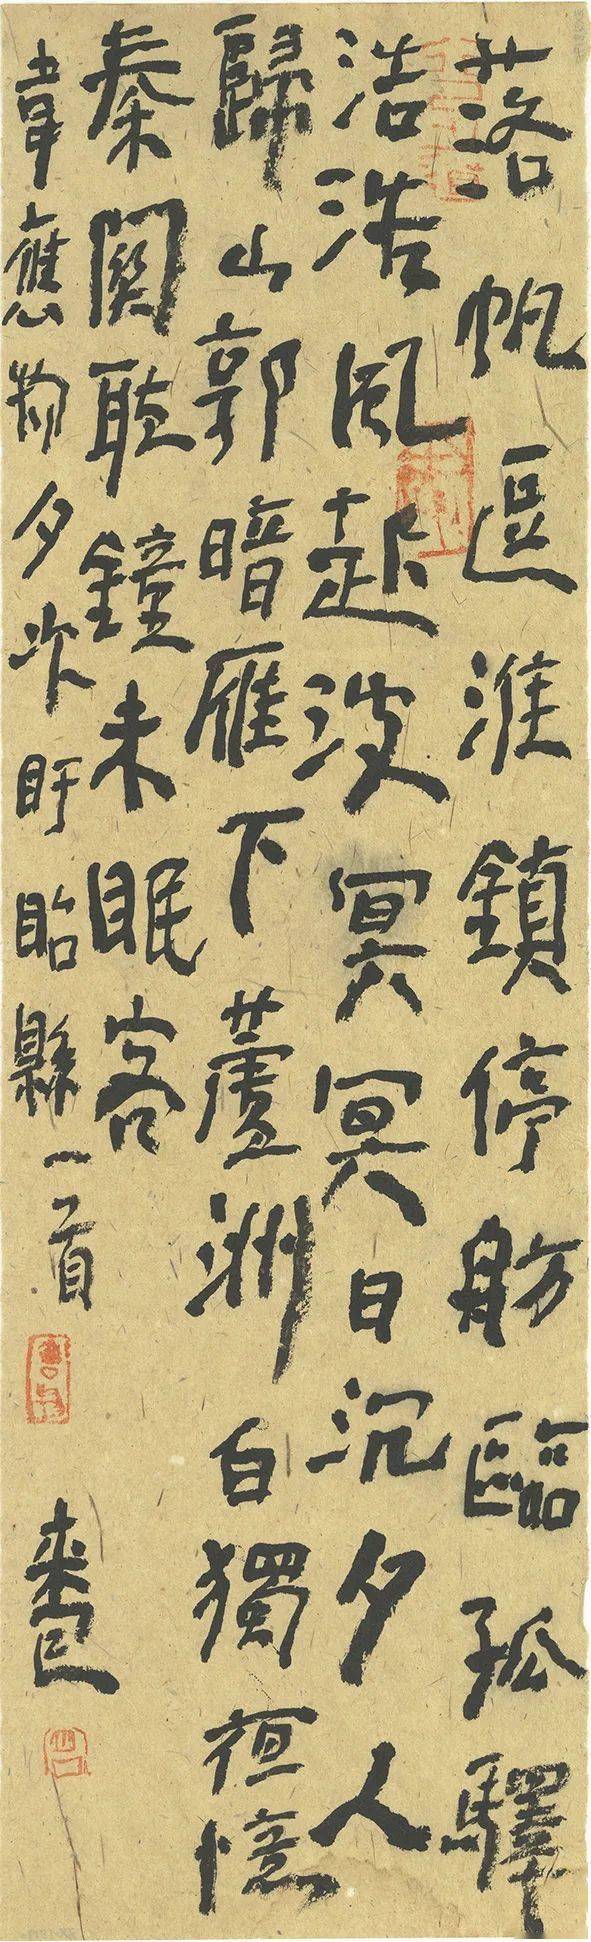 落帆逗淮鎮停舫臨孤驛
浩浩風起波冥冥日沉夕人
歸山郭暗雁下蘆洲白獨夜憶
秦關聽鐘未眠客
韋應物夕次盱眙縣一首